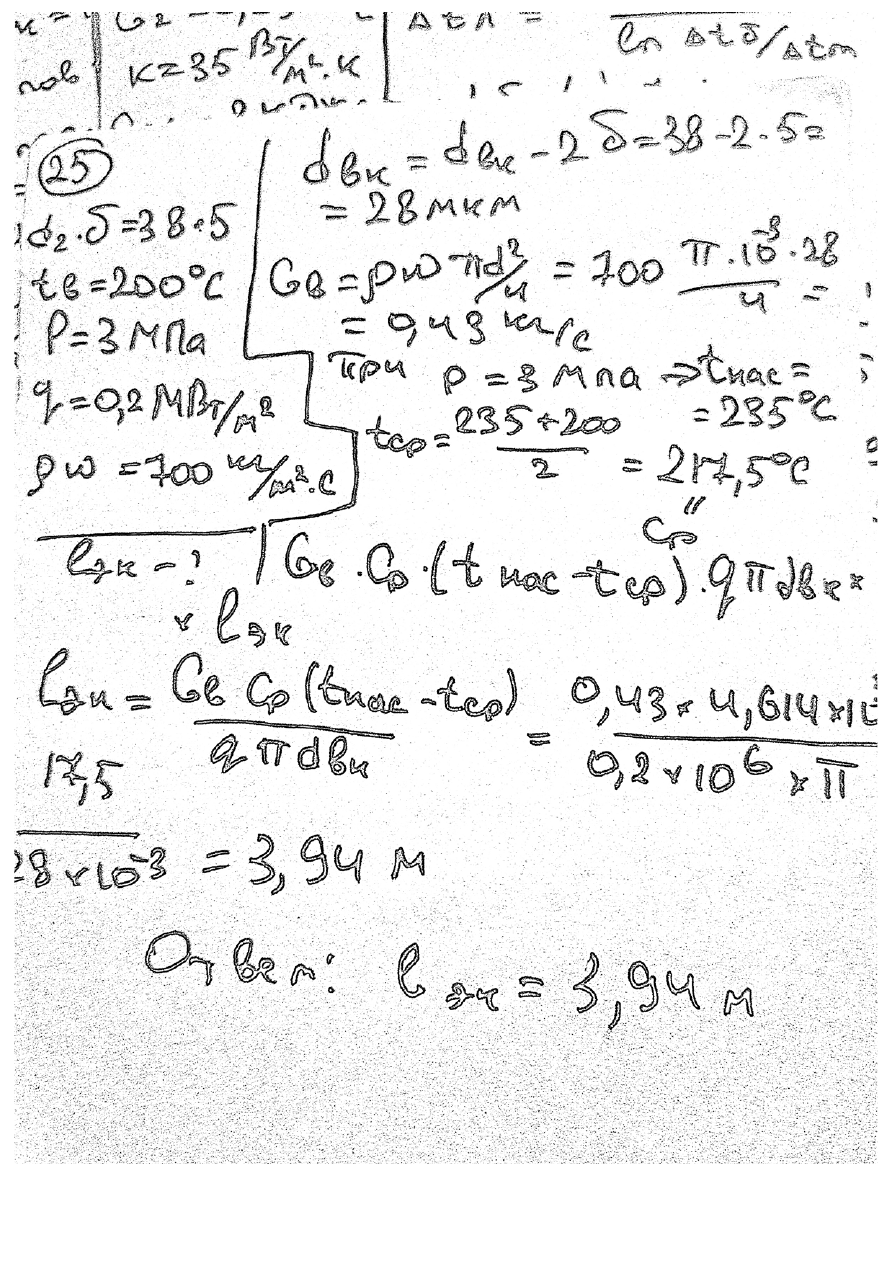 G₂
Δtл =
ln Δtδ/Δtm
пов K=35 Вт/м².к
25
d₂.δ=38·5
tв=200°C
P=3 МПа
q=0,2 МВт/м²
ρω=700 кг/м².с
lэк-?
dвк = dвк - 2δ=38-2·5=
= 28 мкм
Gв=ρω πd²/4 = 700 π·10⁻³·28 / 4 =
= 0,43 кг/с
при p = 3 мпа ⇒ tнас =
= 235°C
tср = 235+200 / 2 = 217,5°C
Cp"
Gв·Cp·(tнас-tср).qπdвк×
× lэк
lэк = Gв Cp (tнас-tср) / qπdвк = 0,43×4,614×10 / 0,2×10⁶×π
17,5
28×10⁻³ = 3,94 м
Ответ: lэк = 3,94 м